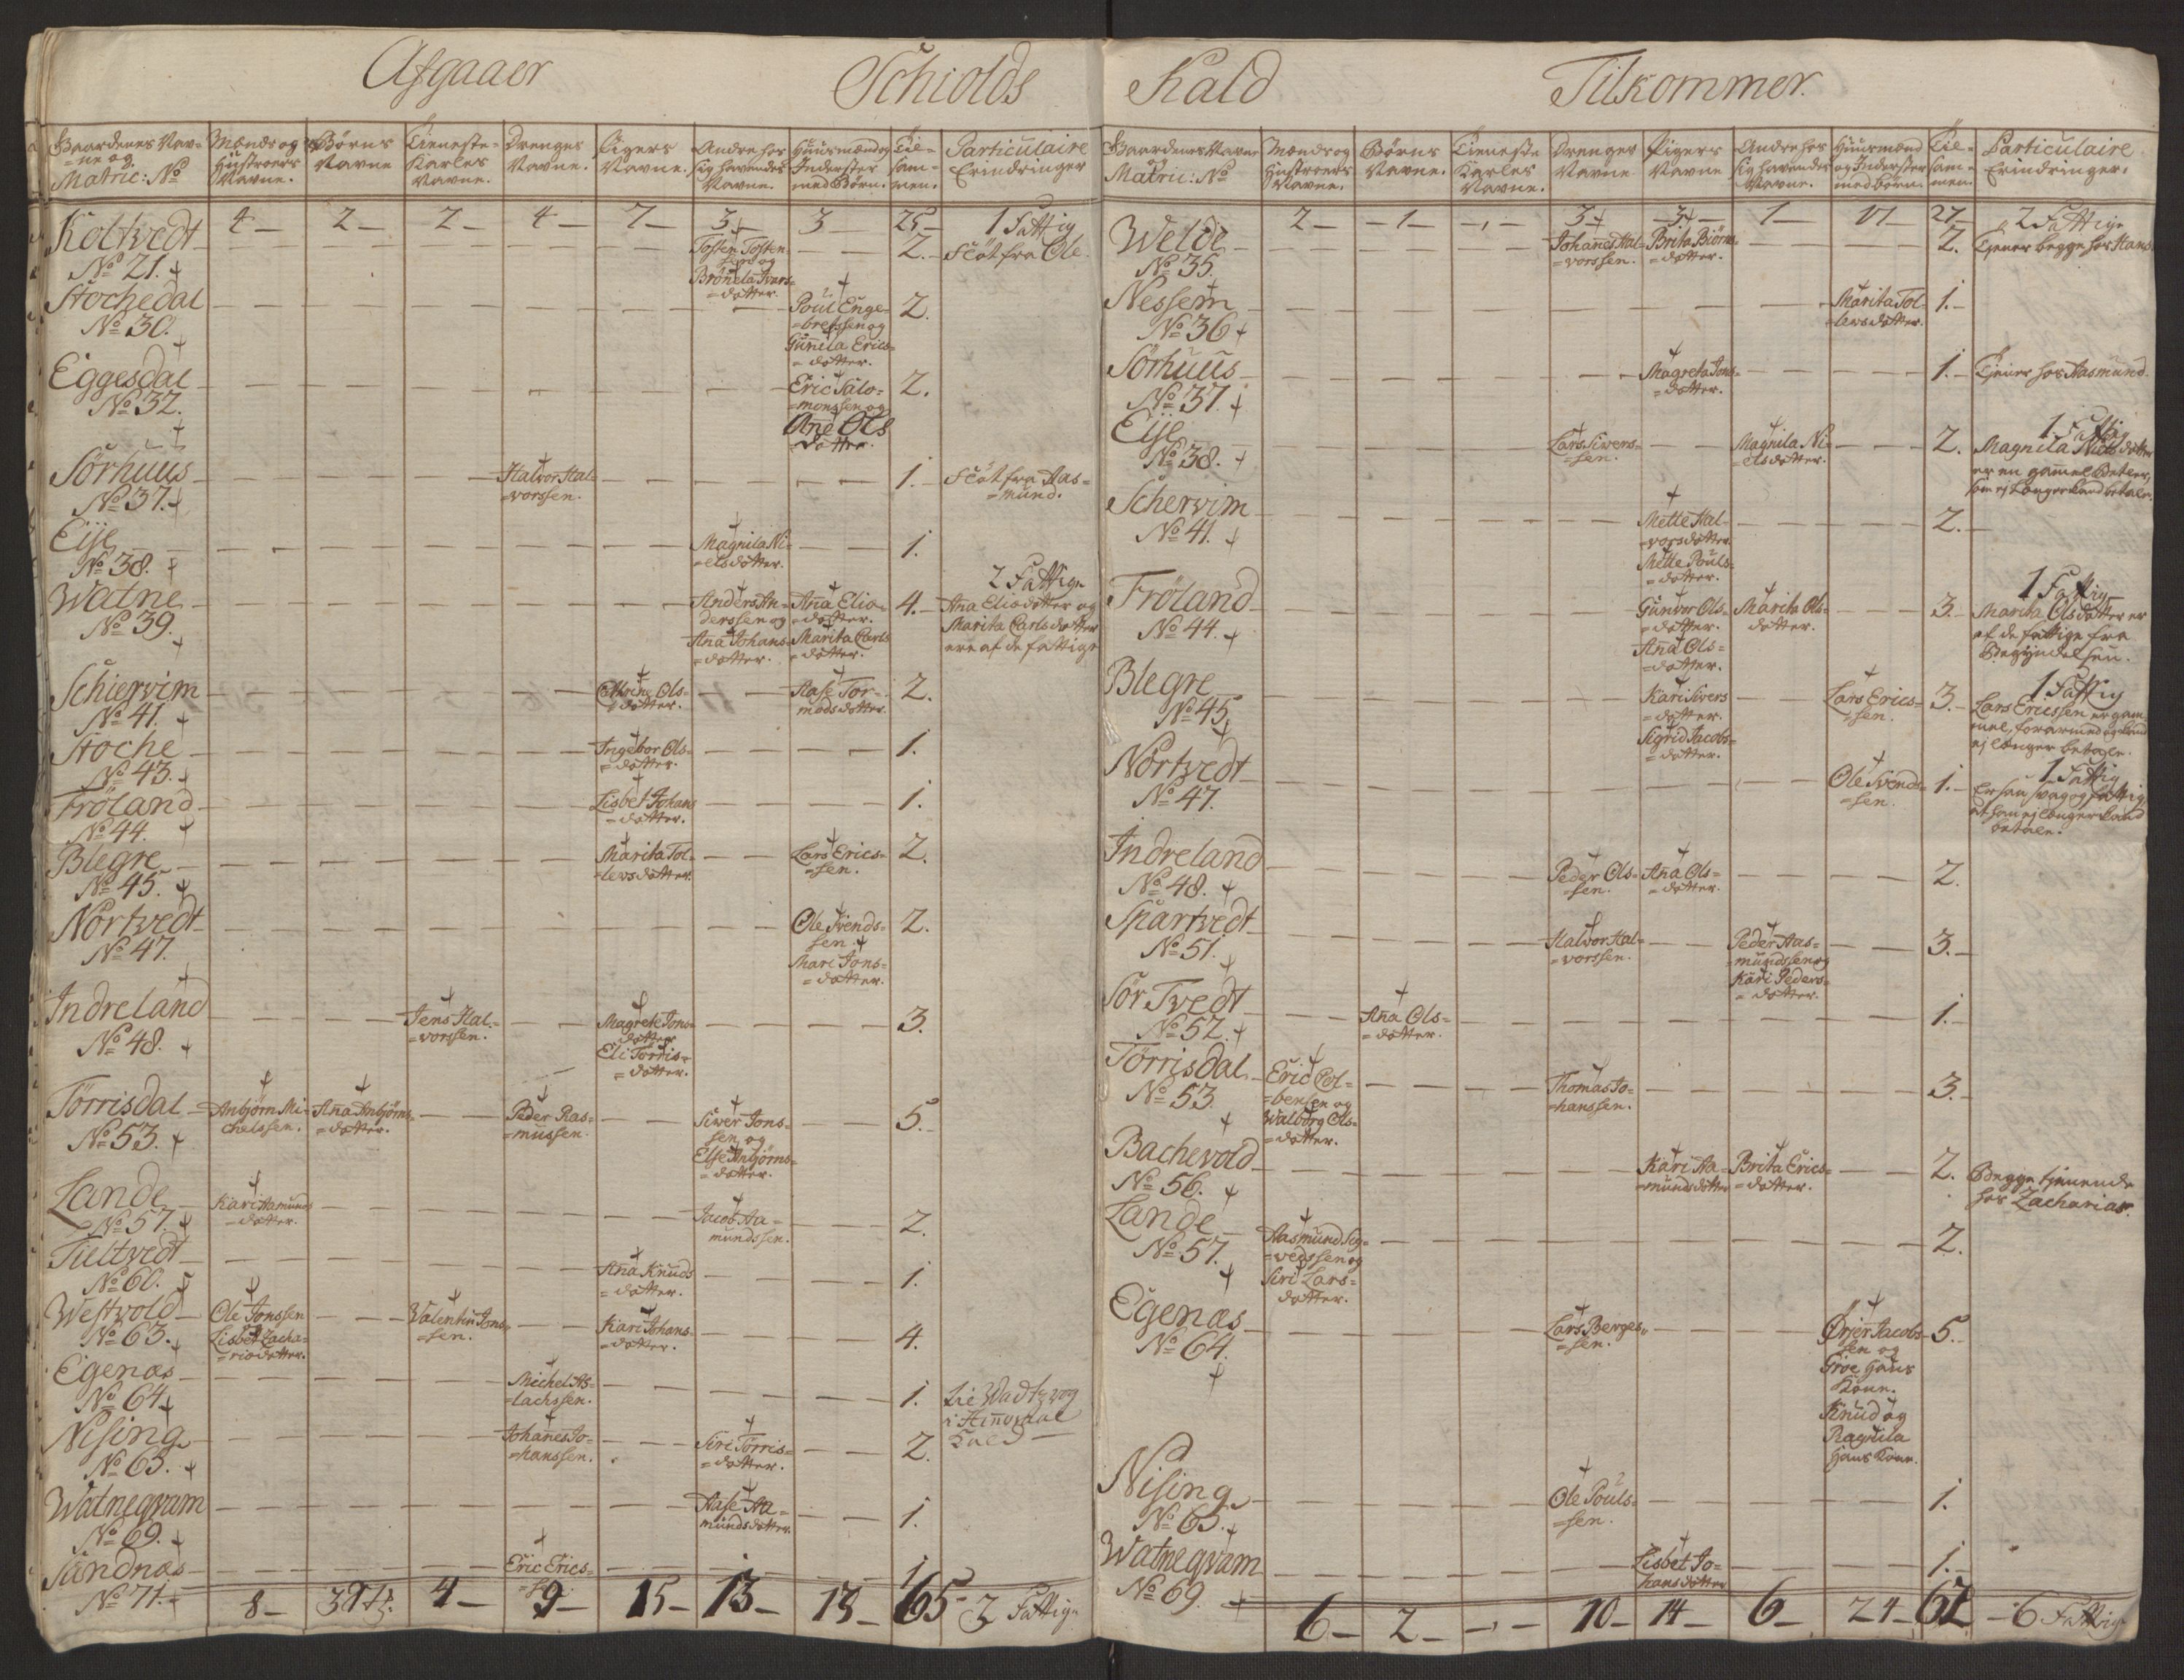 Afgaaer Schiolds
Gaardenes Nav-
=ne og
Matric: No
Mænds og
Hustroers
Navne.
Børns
Navne
Tieneste-
Karles
Navne.
Drenges
Navne.
Pigers
Navne.
Andre hos
sig havendes
Navne.
Huusmænd og
Inderster
med Børn.
Til-
sam-
men.
Particulaire
Erindringer
4 - 2 - 2 - 4 - 7 - 3 - 3 - 25 - 1 Fattig
Koltvedt
No 21.
Tosten Tosten-
sen og
Brönela Ivers-
=dotter.
2.
fra Ole.
Stochedal
No 30.
Poul Enge-
=bretssen og
Gunnela Erics-
=dotter.
2.
Eggesdal
No 32.
Eric Salo-
=monssen og
Ane Ols
dotter.
2.
Sörhuus
No 37.
Halvor Hal-
=vorssen.
1.
fra Aas-
=mund.
Eije
No 38.
Magnila Ni-
=elsdotter.
1.
Watne
No 39.
Anders An-
derssen og
Ana Johans-
=dotter.
Ana Elia-
=dotter.
Marita Carls
=dotter.
4.
2 Fattige
Ana Eliadotter og
Marita Carlsdotter
ere af de fattige
Schiervim
No 41.
Ols-
=dotter.
Aase Tor-
modsdotter.
2.
Stoche
No 43.
Ingebor Ols-
=dotter.
1.
Fröland
No 44.
Lisbet Johans
=dotter.
1.
Blegre
No 45.
Marita Tol-
=levsdotter.
Lars Erics-
=sen.
2.
Nortvedt
No 47.
Ole Svends-
sen.
Mari Jons-
=dotter.
2.
Indreland
No 48.
Jens Hal-
=vorssen.
Magrete Jons-
dotter
Eli Torris-
=dotter.
3.
Törrisdal
No 53.
Anbjörn Mi-
chelssen.
Ana Anbjörns-
=dotter.
Peder Ras-
=mussen.
Siwer Jons-
sen og
Else Anbjörns-
=dotter.
5.
Lande
No 57.
Kari Aamunds
=dotter.
Jacob Aa-
mundssen.
2.
Tieltvedt
No 60.
Ana Knuds
=dotter.
1.
Westvold
No 63.
Ole Jonssen
og
Lisbet Zacha-
=riadotter.
Valentin Jons-
=sen.
Kari Johans-
=dotter.
4.
Egenæs
No 64.
Michel As-
=lachssen.
1.
Kald
Nising
No 65.
Johanes Jo-
=hanssen.
Siri Törris-
=dotter.
2.
Watneqvam
No 69.
Aase Aa-
mundsdotter.
1.
Sandnæs
No 71.
Eric Erics-
1.
8 - 4 - 9 - 15 - 13 - 13 - 65 - 3 Fattige
Kald Tilkommer.
Gaardenes Navne
og
Matric: No
Mænds og
Hustroers
Navne.
Børns
Navne.
Tieneste
Karles
Navne.
Drenges
Navne
Pigers
Navne
Andre hos
sig havendes
Navne.
Huusmænd
og Inderster
med børn.
Til-
sam-
men.
Particulaire
Erindringer.
2 - 1 - - 3 - 3 - 1 - 17 27 - 2 Fattige
Welde
No 35.
Johanes Hal-
=vorssen.
Brita Biörns-
=dotter.
2.
Tjener begge hos Hans
Nessem
No 36
Marita Tol
=levsdotter.
1.
Sörhuus
No 37.
Magreta Jons-
=dotter.
1.
Tjener hos Aasmund.
Eije
No 38.
Lars Sivers-
=sen.
Magnila Ni-
=elsdotter.
2.
1 Fattig
Magnila Nielsdotter
er en gammel Betler,
som ej længer kand betale.
Schervim
No 41.
Mette Hal-
=vorsdotter.
Mette Pouls-
=dotter.
2.
Fröland
No 44.
Gunvor Ols-
=dotter.
Ana Ols-
=dotter.
Marita Ols-
dotter.
3.
1 Fattig
Marita Olsdotter er
af de fattige fra
Begyndelsen.
Blegre
No 45.
Kari Sivers
=dotter.
Sigrid Jacobs-
=dotter.
Lars Erics-
=sen.
3.
1 Fattig
Lars Ericssen er gam-
mel, forarmed og kand
ej længer betale.
Nortvedt
No 47.
Ole Svends-
=sen.
1.
1 Fattig
Er saa svag og fattig,
at han ej længer kand
betale.
Indreland
No 48.
Peder Ols-
=sen.
Ana Ols-
=dotter.
2.
Spartvedt
No 51.
Halvor Hal-
=vorssen.
Peder Aas-
=mundssen og
Kari Peders-
=dotter.
3.
Sör Tvedt
No 52.
Ana Ols-
=dotter.
1.
Törrisdal
No 53.
Eric Col-
=bensen og
Walborg Ols-
=dotter.
Thomas Jo-
=hanssen.
3.
Bachevold
No 56.
Kari Aa-
=mundsdotter
Brita Erics-
=dotter.
2.
Begge tjenende
hos Zacharias.
Lande
No 57.
Aasmund Sig-
=vedssen og
Siri Lars-
dotter.
2.
Egenæs
No 64.
Lars Berges-
=sen.
Örjer Jacobs-
sen og
Groe hans
Kone.
Knud og
Ragnila
hans Kone.
5.
Nising
No 65.
Ole Pouls-
=sen.
1.
Watneqvam
No 69.
Lisbet Jo-
hansdotter
1.
6 - 2 - - 10 - 14 - 6 - 24 - 62 - 6 Fattige